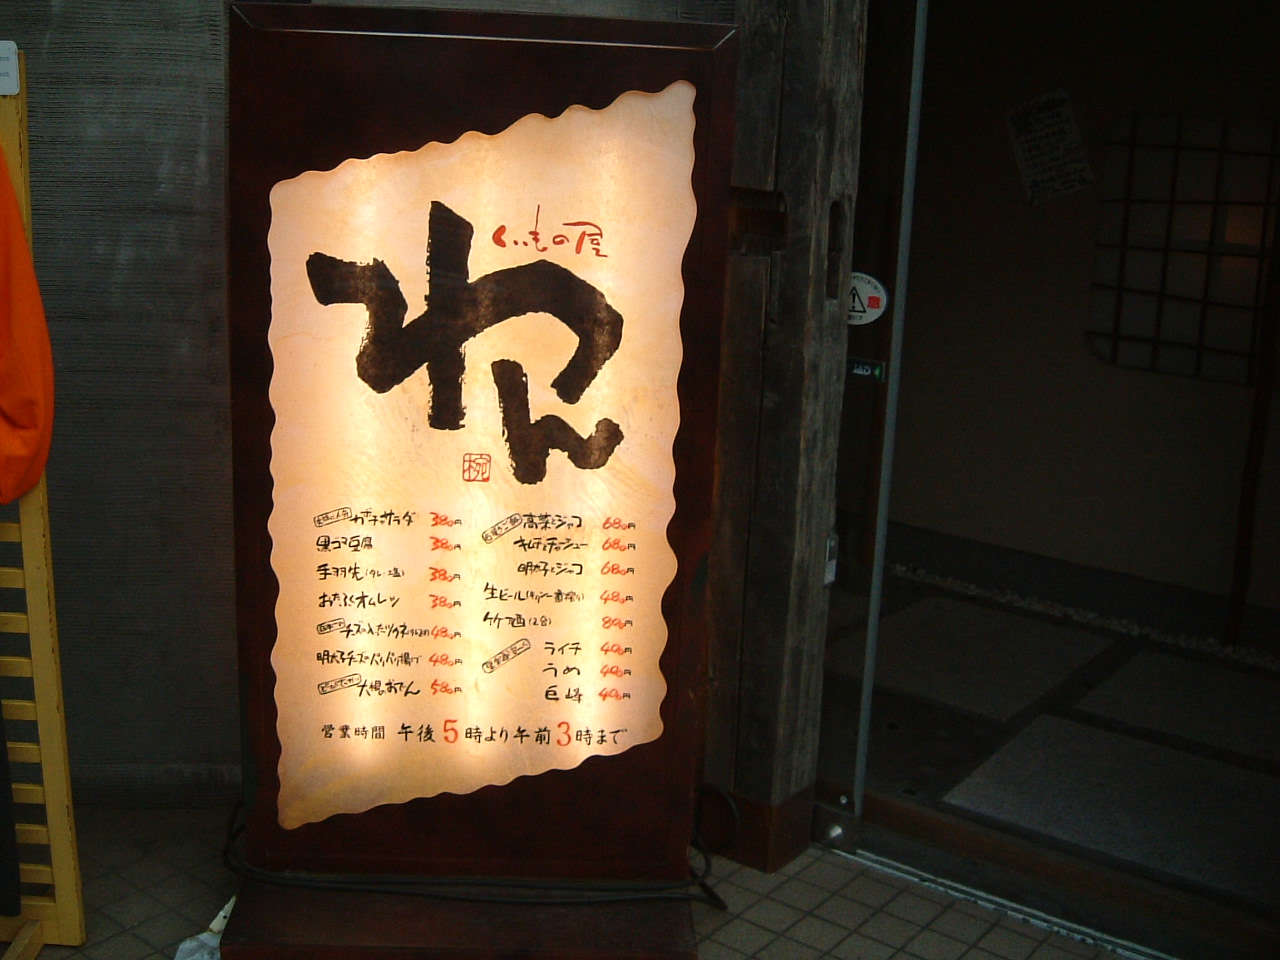 くいもの屋
わん
椀
カボチャサラダ 380円
黒ゴマ豆腐 380円
手羽先(タレ・塩) 380円
おたふくオムレツ 380円
チーズの入ったツクネ 480円
明太子チーズのパリパリ揚げ 480円
大根おでん 580円
高菜とジャコ 680円
キムチとチャーシュー 680円
明太子とジャコ 680円
生ビール 480円
竹酒(2合) 890円
ライチ 490円
うめ 490円
巨峰 490円
営業時間 午後5時より午前3時まで